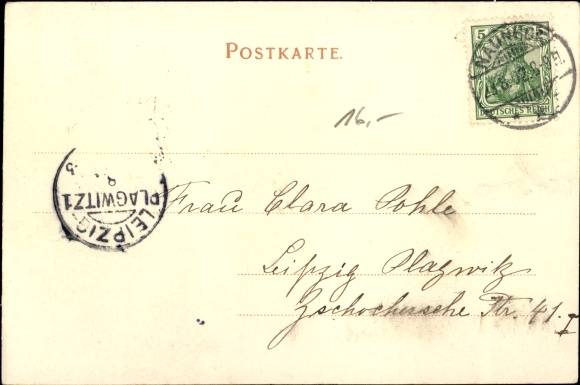 POSTKARTE.
5
NAUNHOF
DEUTSCHES REICH
16,-
LEIPZIG-
PLAGWITZ 1
8
Frau Clara Pohle
Leipzig Plagwitz
Zschochersche Str. 41. I